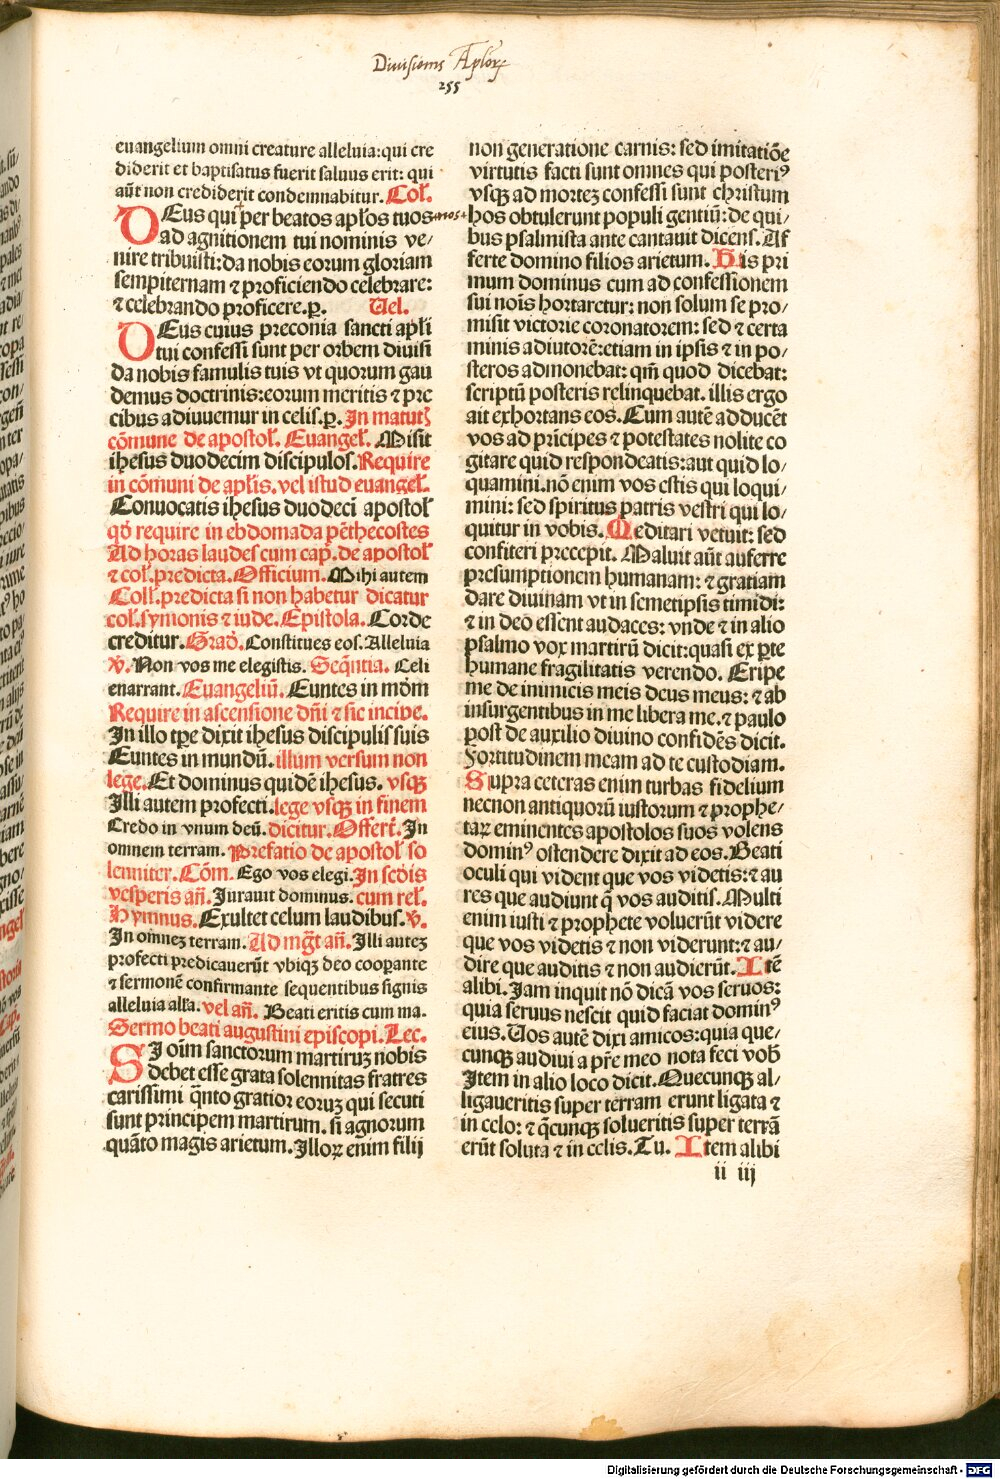 Diuisionis Aplorꝝ
255
euangelium omni creature alleluia:qui cre
diderit et baptisatus fuerit saluus erit: qui
aūt non crediderit condemnabitur. Col̄.
DEus qui per beatos apl̄os tuos nos
ad agnitionem tui nominis ve/
nire tribuisti:da nobis eorum gloriam
sempiternam ⁊ proficiendo celebrare:
⁊ celebrando proficere.p̲. Uel.
DEus cuius preconia sancti apl̄i
tui confessi sunt per orbem diuisi
da nobis famulis tuis vt quorum gau
demus doctrinis:eorum meritis ⁊ pre
cibus adiuuemur in celis.p̲. In matut̄
cōmune de apostol̄. Euangel̄. Misit
ihesus duodecim discipulos.Require
in cōmuni de apl̄is.vel istud euangel̄.
Conuocatis ihesus duodeci apostol̄
qd̄ require in ebdomada pēthecostes
Ad horas laudes cum cap̄.de apostol̄
⁊ col̄.predicta.Officium.Mihi autem
Coll̄.predicta si non habetur dicatur
col̄.symonis ⁊ iude.Epistola.Corde
creditur.Grad̄.Constitues eos.Alleluia
v̄.Non vos me elegistis. Seq̄ntia. Celi
enarrant.Euangeliū.Euntes in mōm
Require in ascensione dn̄i ⁊ sic incipe.
In illo tp̄e dixit ihesus discipulis suis
Euntes in mundū. illum versum non
lege.Et dominus quidē ihesus. vsqꝫ
Illi autem profecti.lege vsqꝫ in finem
Credo in vnum deū.dicitur.Offert̄.In
omnem terram. Prefatio de apostol̄ so
lenniter.Cōm. Ego vos elegi.In scd̄is
vesperis an̄. Jurauit dominus. cum rel̄.
Hymnus.Exultet celum laudibus.v̄.
In omneꝫ terram. Ad mḡt an̄.Illi auteꝫ
profecti predicauerūt vbiqꝫ deo cooꝑante
⁊ sermonē confirmante sequentibus signis
alleluia all̄a.vel an̄. Beati eritis cum ma.
Sermo beati augustini episcopi.Lec.
SI oīm sanctorum martiruꝫ nobis
debet esse grata solennitas fratres
carissimi q̄nto gratior eoruꝫ qui secuti
sunt principem martirum. si agnorum
quāto magis arietum.Illoꝝ enim filij
non generatione carnis: sed imitatiōe
virtutis facti sunt omnes qui posteriꝰ
vsqꝫ ad morteꝫ confessi sunt christum
hos obtulerunt populi gentiū:de qui/
bus psalmista ante cantauit dicens.Af
ferte domino filios arietum. His pri
mum dominus cum ad confessionem
sui nois̄ hortaretur: non solum se pro/
misit victorie coronatorem: sed ⁊ certa
minis adiutorē:etiam in ipsis ⁊ in po/
steros admonebat: qm̄ quod dicebat:
scriptū posteris relinquebat. illis ergo
ait exhortans eos.Cum autē adducēt
vos ad prīcipes ⁊ potestates nolite co
gitare quid respondeatis:aut quid lo/
quamini.nō enim vos estis qui loqui/
mini: sed spiritus patris vestri qui lo/
quitur in vobis.Meditari vetuit: sed
confiteri precepit. Maluit aūt auferre
presumptionem humanam: ⁊ gratiam
dare diuinam vt in semetipsis timidi:
⁊ in deo essent audaces: vnde ⁊ in alio
psalmo vox martirū dicit:quasi ex ꝑte
humane fragilitatis verendo. Eripe
me de inimicis meis deus meus: ⁊ ab
insurgentibus in me libera me.⁊ paulo
post de auxilio diuino confidēs dicit.
Fortitudinem meam ad te custodiam.
Supra ceteras enim turbas fidelium
necnon antiquorū iustorum ⁊ prophe/
taꝝ eminentes apostolos suos volens
dominꝰ ostendere dixit ad eos.Beati
oculi qui vident que vos videtis:⁊ au
res que audiunt q̄ vos auditis.Multi
enim iusti ⁊ prophete voluerūt videre
que vos videtis ⁊ non viderunt:⁊ au/
dire que auditis ⁊ non audierūt.Itē
alibi.Jam inquit nō dicā vos seruos:
quia seruus nescit quid faciat dominꝰ
eius.Uos autē dixi amicos:quia que/
cunqꝫ audiui a pr̄e meo nota feci vob̄
Item in alio loco dicit.Quecunqꝫ al/
ligaueritis super terram erunt ligata ⁊
in celo: ⁊ q̄cunqꝫ solueritis super terrā
erūt soluta ⁊ in celis.Tu. Item alibi
ii iij
Digitalisierung gefördert durch die Deutsche Forschungsgemeinschaft - DFG